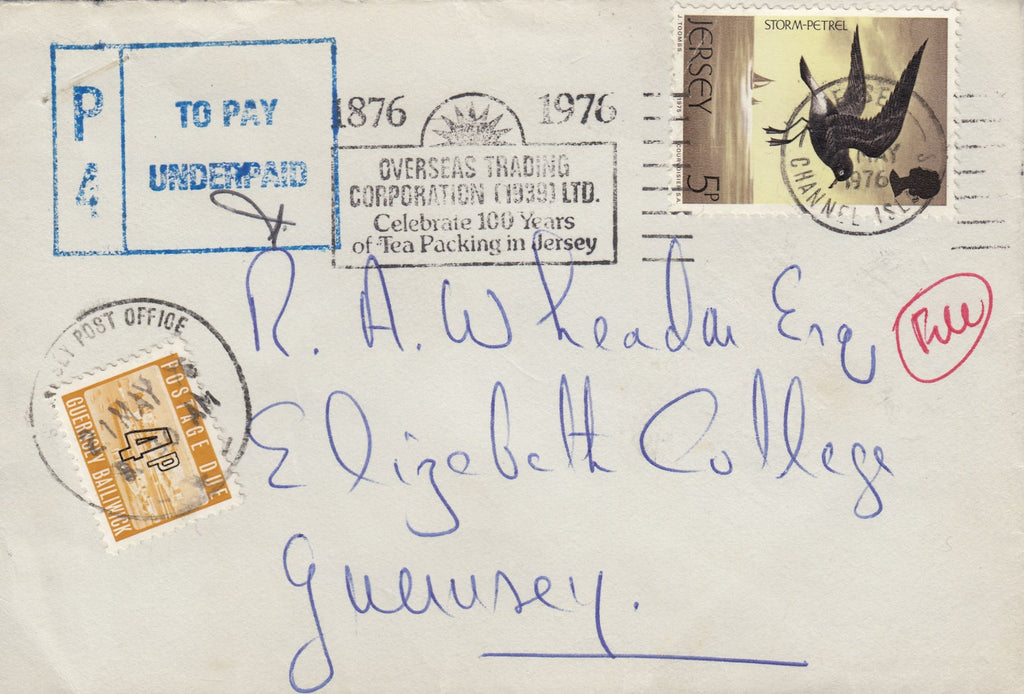 P
4
TO PAY
UNDERPAID
1876 1976
OVERSEAS TRADING
CORPORATION (1939) LTD.
Celebrate 100 Years
of Tea Packing in Jersey
STORM-PETREL
JERSEY
J.TOOMBS
1975
5P
MAY
1976
CHANNEL ISL
R. A. Wheadon Esq
Elizabeth College
Guernsey.
POST OFFICE
POSTAGE DUE
1 MAY
4P
GUERNSEY BAILIWICK